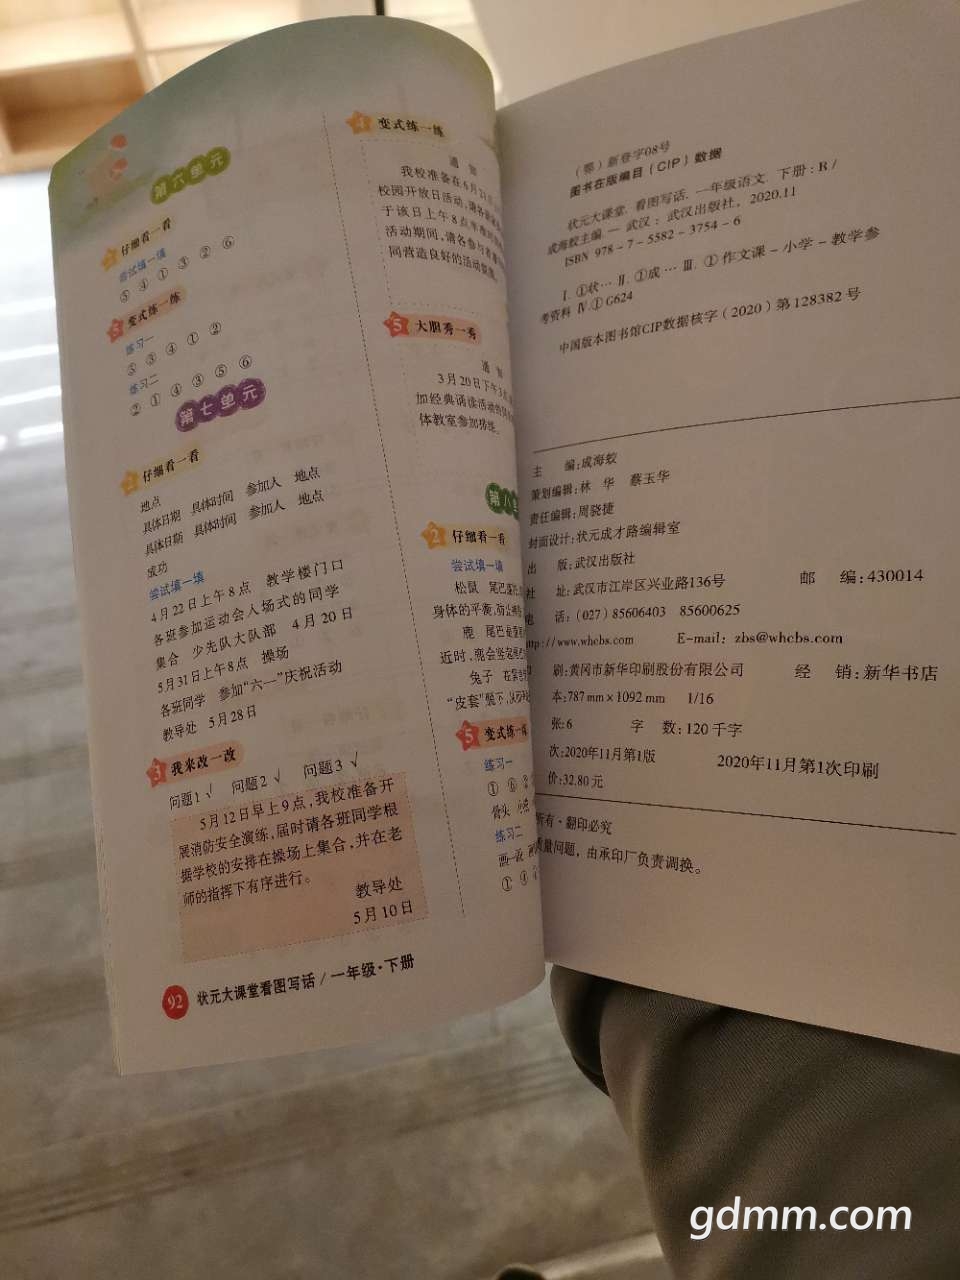 第六单元
2 仔细看一看
尝试填一填
⑤ ④ ① ③ ② ⑥
5 变式练一练
练习一
⑤ ③ ④ ① ②
练习二
② ① ④ ③ ⑤ ⑥
第七单元
2 仔细看一看
地点
具体日期 具体时间 参加人 地点
具体日期 具体时间 参加人 地点
成功
尝试填一填
4月22日上午8点 教学楼门口
各班参加运动会入场式的同学
集合 少先队大队部 4月20日
5月31日上午8点 操场
各班同学 参加“六一”庆祝活动
教导处 5月28日
3 我来改一改
问题1 √ 问题2 √ 问题3 √
5月12日早上9点，我校准备开
展消防安全演练，届时请各班同学根
据学校的安排在操场上集合，并在老
师的指挥下有序进行。
教导处
5月10日
92 状元大课堂看图写话/一年级·下册
4 变式练一练
通 知
我校准备在6月21
校园开放日活动，请各
于该日上午8点
活动期间，请各
同营造良好的活动
5 大胆秀一秀
通 知
3月20日下午3
加经典诵读活动的
体教室参加排练。
第八单
2 仔细看一看
尝试填一填
松鼠 尾巴
身体的平衡，
鹿 尾巴
近时，鹿会竖
兔子
“皮套”
5 变式练一练
练习一
① ⑥
骨头
练习二
① ④
（鄂）新登字08号
图书在版编目（CIP）数据
状元大课堂. 看图写话. 一年级语文. 下册：R /
成海蛟主编 — 武汉：武汉出版社，2020.11
ISBN 978-7-5582-3754-6
Ⅰ. ①状… Ⅱ. ①成… Ⅲ. ①作文课-小学-教学参
考资料 Ⅳ.①G624
中国版本图书馆CIP数据核字（2020）第128382号
主 编：成海蛟
策划编辑：林 华 蔡玉华
责任编辑：周骁捷
封面设计：状元成才路编辑室
出 版：武汉出版社
社 址：武汉市江岸区兴业路136号 邮 编：430014
电 话：（027）85606403 85600625
http://www.whcbs.com E-mail：zbs@whcbs.com
刷：黄冈市新华印刷股份有限公司 经 销：新华书店
本：787mm×1092mm 1/16
张：6 字 数：120千字
次：2020年11月第1版 2020年11月第1次印刷
价：32.80元
所有·翻印必究
质量问题，由承印厂负责调换。
gdmm.com